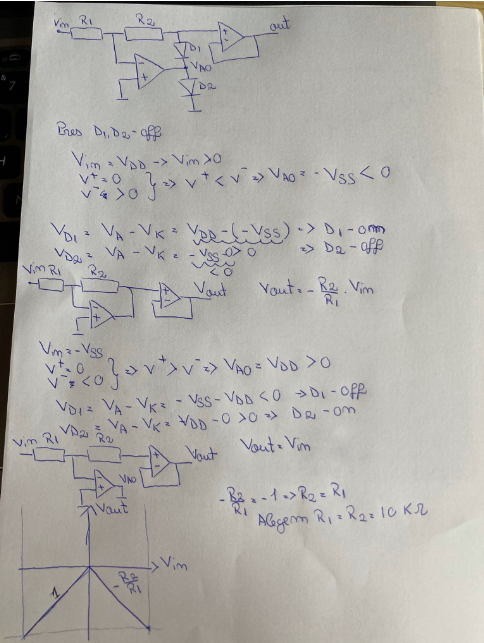 Vin R1 R2 out
- +
+ -
D1
VAO
D2
Pres D1,D2-off
Vin = VDD -> Vin>0
V+ = 0
V- > 0 } => V+ < V- => VAO = -VSS < 0
VD1 = VA - VK = VDD-(-VSS) => D1-on
VD2 = VA - VK = -VSS-0>0 => D2-off
<0
Vin R1 R2 Vout Vout = - R2/R1 . Vin
Vin = -VSS
V+ = 0
V- < 0 } => V+ > V- => VAO = VDD > 0
VD1 = VA - VK = -VSS-VDD <0 -> D1-off
VD2 = VA - VK = VDD-0 >0 => D2-on
Vin R1 R2 Vout Vout = Vin
VAO
-R2/R1 = -1 => R2 = R1
Alegem R1 = R2 = 10 KΩ
Vout
Vin
1 -R2/R1